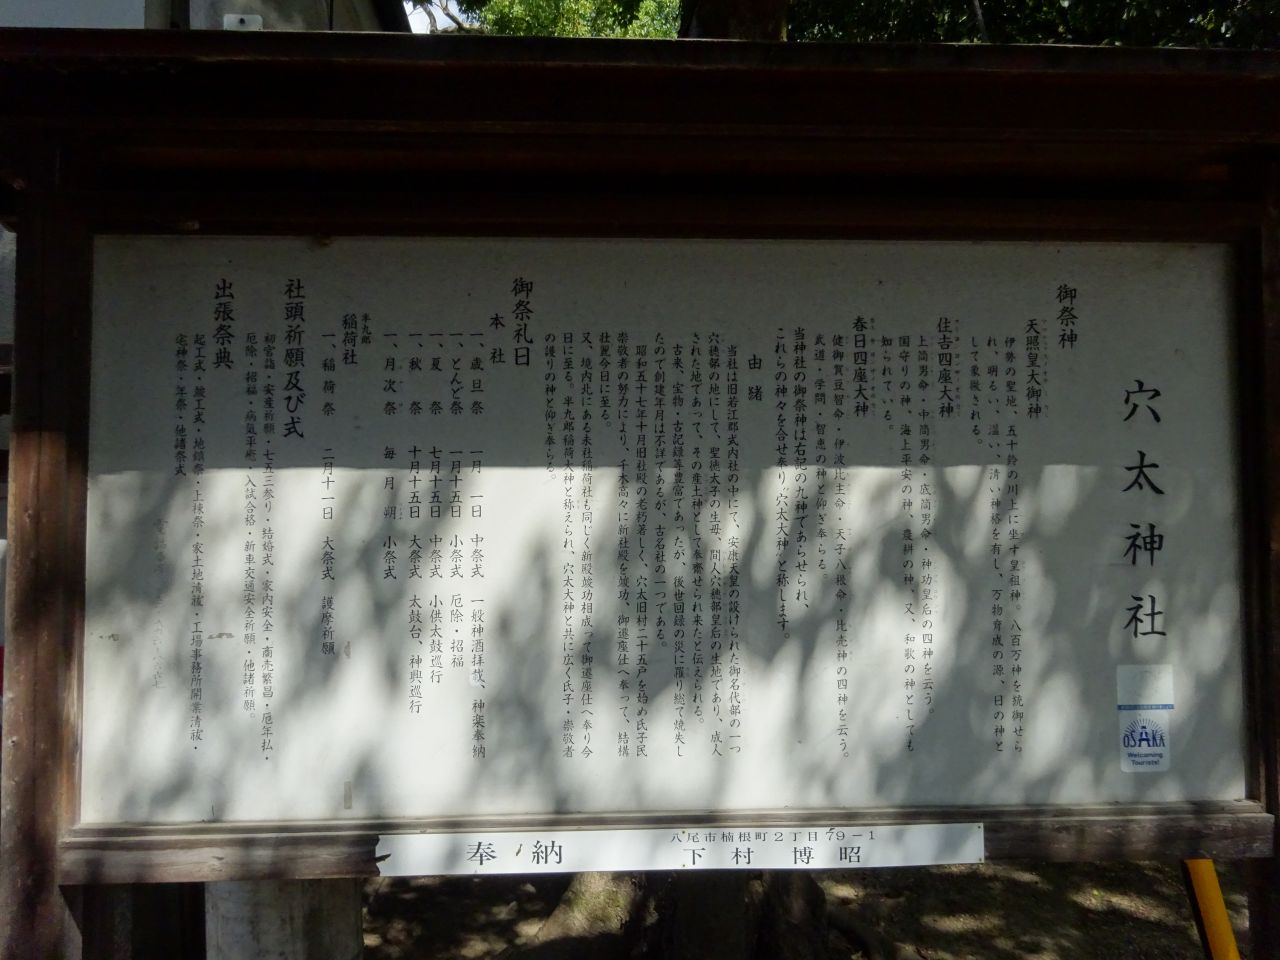 穴太神社
御祭神
天照皇大御神
伊勢の聖地、五十鈴の川上に坐す皇祖神。八百万神を統御せら
れ、明るい、温い、清い神格を有し、万物育成の源、日の神と
して象徴される。
住吉四座大神
上筒男命・中筒男命・底筒男命・神功皇后の四神を云う。
国守りの神、海上平安の神、農耕の神、又、和歌の神としても
知られている。
春日四座大神
健御賀豆智命・伊波比主命・天子八根命・比売神の四神を云う。
武道・学問・智恵の神と仰ぎ奉らる。
当神社の御祭神は右記の九神であらせられ、
これらの神々を合せ奉り「穴太大神」と称します。
由緒
当社は旧若江郡式内社の中にて、安康天皇の設けられた御名代部の一つ
穴穂部の地にして、聖徳太子の生母、間人穴穂部皇后の生地であり、成人
された地であって、その産土神として奉齋せられ来たと伝えられる。
古来、宝物・古記録等豊富であったが、後世回録の災に罹り総て焼失し
たので創建年月は不詳であるが、古名社の一つである。
昭和五十七年十月旧社殿の老朽著しく、穴太旧村二十五戸を始め氏子民
崇敬者の努力により、千木高々に新社殿を竣功、御遷座仕へ奉って、結構
壮麗今日に至る。
又、境内北にある末社稲荷社も同じく新殿竣功相成って御遷座仕へ奉り今
日に至る。半九郎稲荷大神と称えられ、穴太大神と共に広く氏子・崇敬者
の護りの神と仰ぎ奉らる。
御祭礼日
本社
一、歳旦祭 一月一日 中祭式 一般神酒拝戴、神楽奉納
一、とんど祭 一月十五日 小祭式 厄除・招福
一、夏祭 七月十五日 中祭式 小供太鼓巡行
一、秋祭 十月十五日 大祭式 太鼓台、神輿巡行
一、月次祭 毎月朔 小祭式
半九郎
稲荷社
一、稲荷祭 二月十一日 大祭式 護摩祈願
社頭祈願及び式
初宮詣・安産祈願・七五三参り・結婚式・家内安全・商売繁昌・厄年払・
厄除・招福・病気平癒・入試合格・新車交通安全祈願・他諸祈願。
出張祭典
起工式・竣工式・地鎮祭・上棟祭・家土地清祓・工場事務所開業清祓・
宅神祭・年祭・他諸祭式
OSAKA
Welcoming
Tourists!
八尾市楠根町2丁目79－1
奉納 下村博昭